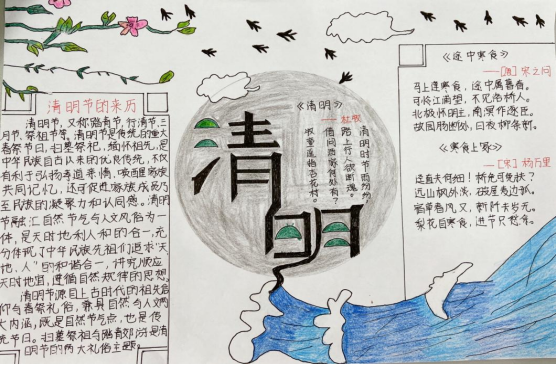 清明节的来历
清明节，又称踏青节，行清节，三
月节，祭祖节等，清明节是传统的重大
春祭节日，扫墓祭祀，缅怀祖先，是
中华民族自古以来的优良传统，不仅
有利于弘扬孝道亲情，唤醒家族
共同记忆，还可促进家族成员乃
至民族的凝聚力和认同感。清明
节融汇自然节气与人文风俗为一
体，是天时地利人和的合一，充
分体现了中华民族先祖们追求“天
地，人”的和谐合一，讲究顺应
天时地宜，遵循自然规律的思想
清明节源自上古时代的祖先信
仰与春祭礼俗，兼具自然与人文两
大内涵，既是自然节气点，也是传
统节日。扫墓祭祖与踏青郊游是清
明节的两大礼俗主题。
清明
《清明》
——杜牧
清明时节雨纷纷，
路上行人欲断魂。
借问酒家何处有？
牧童遥指杏花村。
《途中寒食》
——[唐]宋之问
马上逢寒食，途中属暮春。
可怜江浦望，不见洛桥人。
北极怀明主，南溟作逐臣。
故园肠断处，日夜柳条新。
《寒食上冢》
——[宋]杨万里
迳直夫何细！桥危可免扶？
远山枫外淡，破屋麦边孤。
宿草春风又，新阡去岁无。
梨花自寒食，进节只愁余。